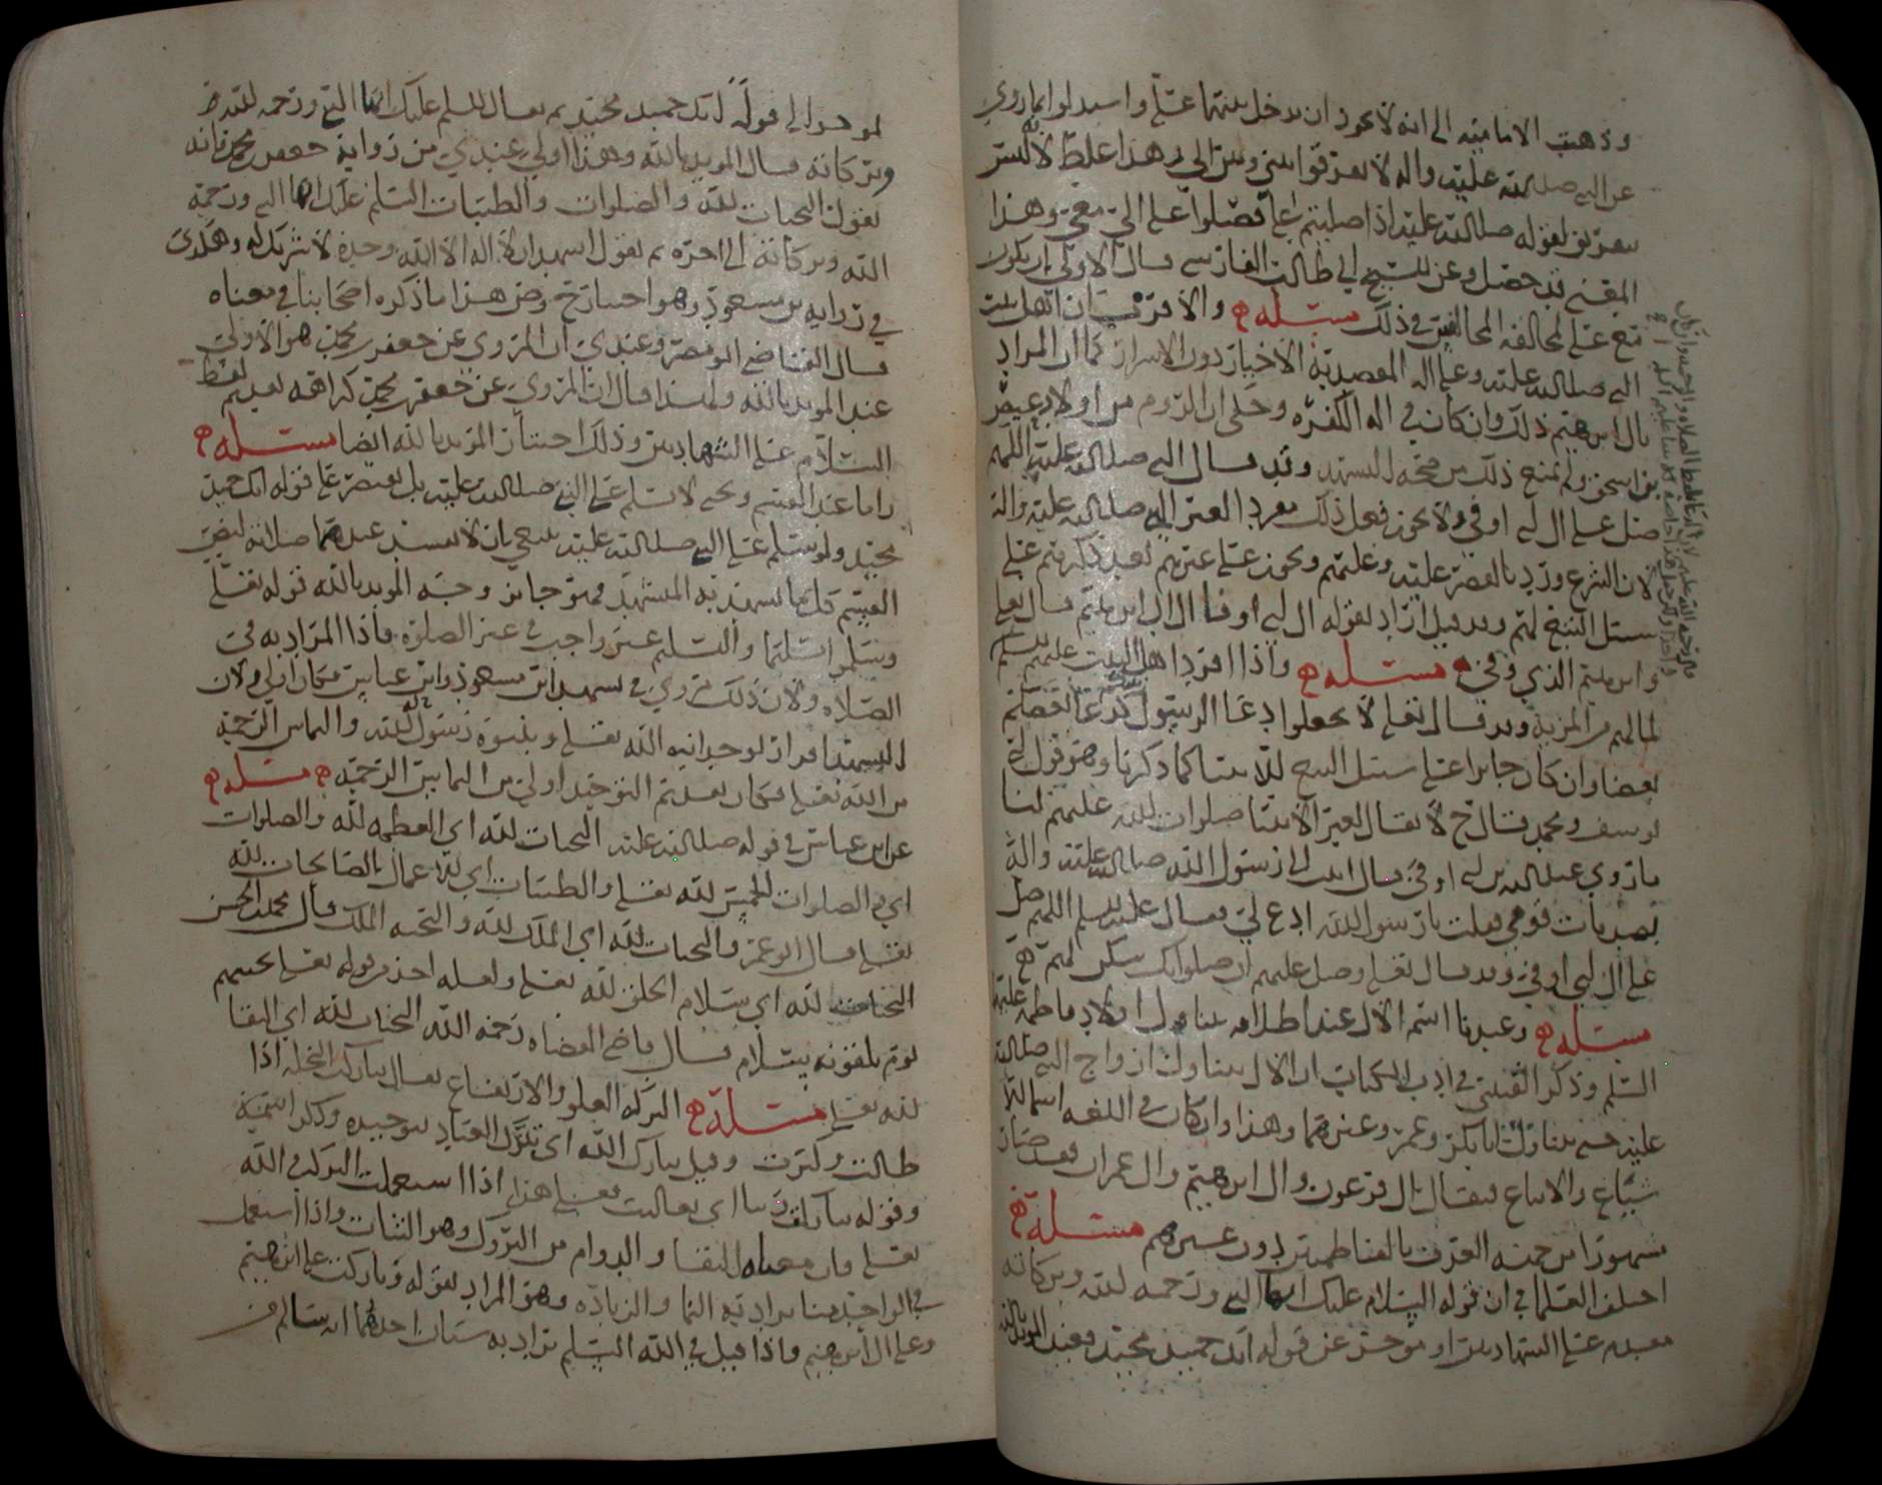 وذهبت الامامية الى انه لا يجوز ان يدخل بينهما على واستدلوا بما روي
عن النبي صلى الله عليه واله لا تفرقوا بيني وبين الي وهذا غلط لانه ليس
بتفريق لقوله صلى الله عليه اذا صليتم علي فصلوا على الي معي وهذا
المعنى قد حصل وعن الشيخ ابي طالب الفارسي قال الاولى ان يكون
مع على لمخالفة المخالفين في ذلك مسئلة والاقرب ان اهل بيت
النبي صلى الله عليه وعلى اله المقصود به الاخيار دون الاشرار كما ان المراد
بال ابرهيم ذلك وان كان في اله الكفره وحكي ان الروم من اولاد عيص
بن اسحق ولم يمنع ذلك من صحة التشهد وقد قال النبي صلى الله عليه اللهم
صل على ال ابي اوفى ولا يجوز فعل ذلك مفردا لغير النبي صلى الله عليه واله
لان الشرع ورد بالقصر عليه وعليهم ويجوز على غيرهم بعد ذكرهم على
سبيل التبع لهم وقد قيل اراد بقوله ال ابي اوفى ال ابرهيم قال تعالى
وابرهيم الذي وفى مسئلة واذا افرد اهل البيت عليهم السلم
لمالهم من المزية وقد قال تعالى لا تجعلوا دعا الرسول كدعا بعضكم
بعضا وان كان جايزا على سبيل التبع للانبيا كما ذكرنا وهو قول ابي
يوسف ومحمد وقال ح لا يقال لغير الانبيا صلوات الله عليهم لنا
ما روي عبد الله بن ابي اوفى قال اتيت الى رسول الله صلى الله عليه واله
بصدقات قومي فقلت يا رسول الله ادع لي فقال عليه السلم اللهم صل
على ال ابي اوفى وقد قال تعالى وصل عليهم ان صلواتك سكن لهم
مسئلة وعندنا اسم الال عند اطلاقه يتناول اولاد فاطمة عليها
السلم وذكر القتيبي في ادب الكتاب ان الال يتناول ازواج النبي صلى الله
عليه حتى يتناول ابابكر وعمر وغيرهما وهذا وان كان في اللغة اسما للا
شياع والاتباع فيقال ال فرعون وال ابرهيم وال عمران فقد صار
مشهورا من جهة العرف بالفاطميين دون غيرهم مسئلة
اختلف العلما في ان قوله السلام عليك ايها النبي ورحمة الله وبركاته
مقدم على الشهادتين او موخر عن قوله انك حميد مجيد فعند المويد بالله
موخر الى قوله انك حميد مجيد ثم يقال السلم عليك ايها النبي ورحمة الله
وبركاته قال المويد بالله وهذا اولى عندي من رواية جعفر بن محمد فانه
يقول التحيات لله والصلوات والطيبات السلم عليك ايها النبي ورحمة
الله وبركاته الى اخره ثم يقول اشهد ان لا اله الا الله وحده لا شريك له وهكذى
في رواية بن مسعود وهو اختيار ح وش هذا ما ذكره اصحابنا في معناه
قال القاضي ابو مضر وعندي ان المروي عن جعفر بن محمد هو الاولى
عند المويد بالله ولهذا قال ان المروي عن جعفر بن محمد كراهة تقديم لفظ
السلام على الشهادتين وذلك اختيار المويد بالله ايضا مسئلة
واما عند القسم ويحيى لا تسلم على النبي صلى الله عليه بل يقتصر على قوله انك حميد
مجيد ولو سلم على النبي صلى الله عليه ينبغي ان لا تفسد عندهما صلاته لنص
القسم كل ما تشهد به المتشهد فهو جايز وحجة المويد بالله قوله تعالى
وسلموا تسليما والتسليم غير واجب في غير الصلوة فاذا المراد به في
الصلاه ولان ذلك مروي في تشهد ابن مسعود وابن عباس فكان اولى ولان
التشهد اقرار لوحدانية الله تعالى وبنبوة رسول الله والتماس الرحمة
من الله تعالى فكان تقديم التوحيد اولى من التماس الرحمة مسئلة
عن ابن عباس في قوله صلى الله عليه التحيات لله اي العظمة لله والصلوات
اي الصلوات الخمس لله تعالى والطيبات اي الاعمال الصالحات لله
تعالى قال ابو عمر والتحيات لله اي الملك لله والتحية الملك قال محمد بن الحسن
التحيات لله اي سلام الخلق لله تعالى ولعله اخذه من قوله تعالى تحيتهم
يوم يلقونه سلام قال قاضي القضاة رحمه الله التحيات لله اي البقا
لله تعالى مسئلة البركة العلو والارتفاع يقال تبارك النخلة اذا
طالت وكبرت وقيل تبارك الله اي تبرك العباد بتوحيده وذكر اسمه
وقوله تباركت ربنا اي تعاليت فعلى هذا اذا استعملت البركة في الله
تعالى فان معناه البقا والدوام من البروك وهو الثبات واذا استعمل
في الواحد منا يراد به النما والزيادة وهو المراد بقوله وباركت على ابرهيم
وعلى ال ابرهيم واذا قيل في الله السلم يراد به شيئان احدهما انه سالم من